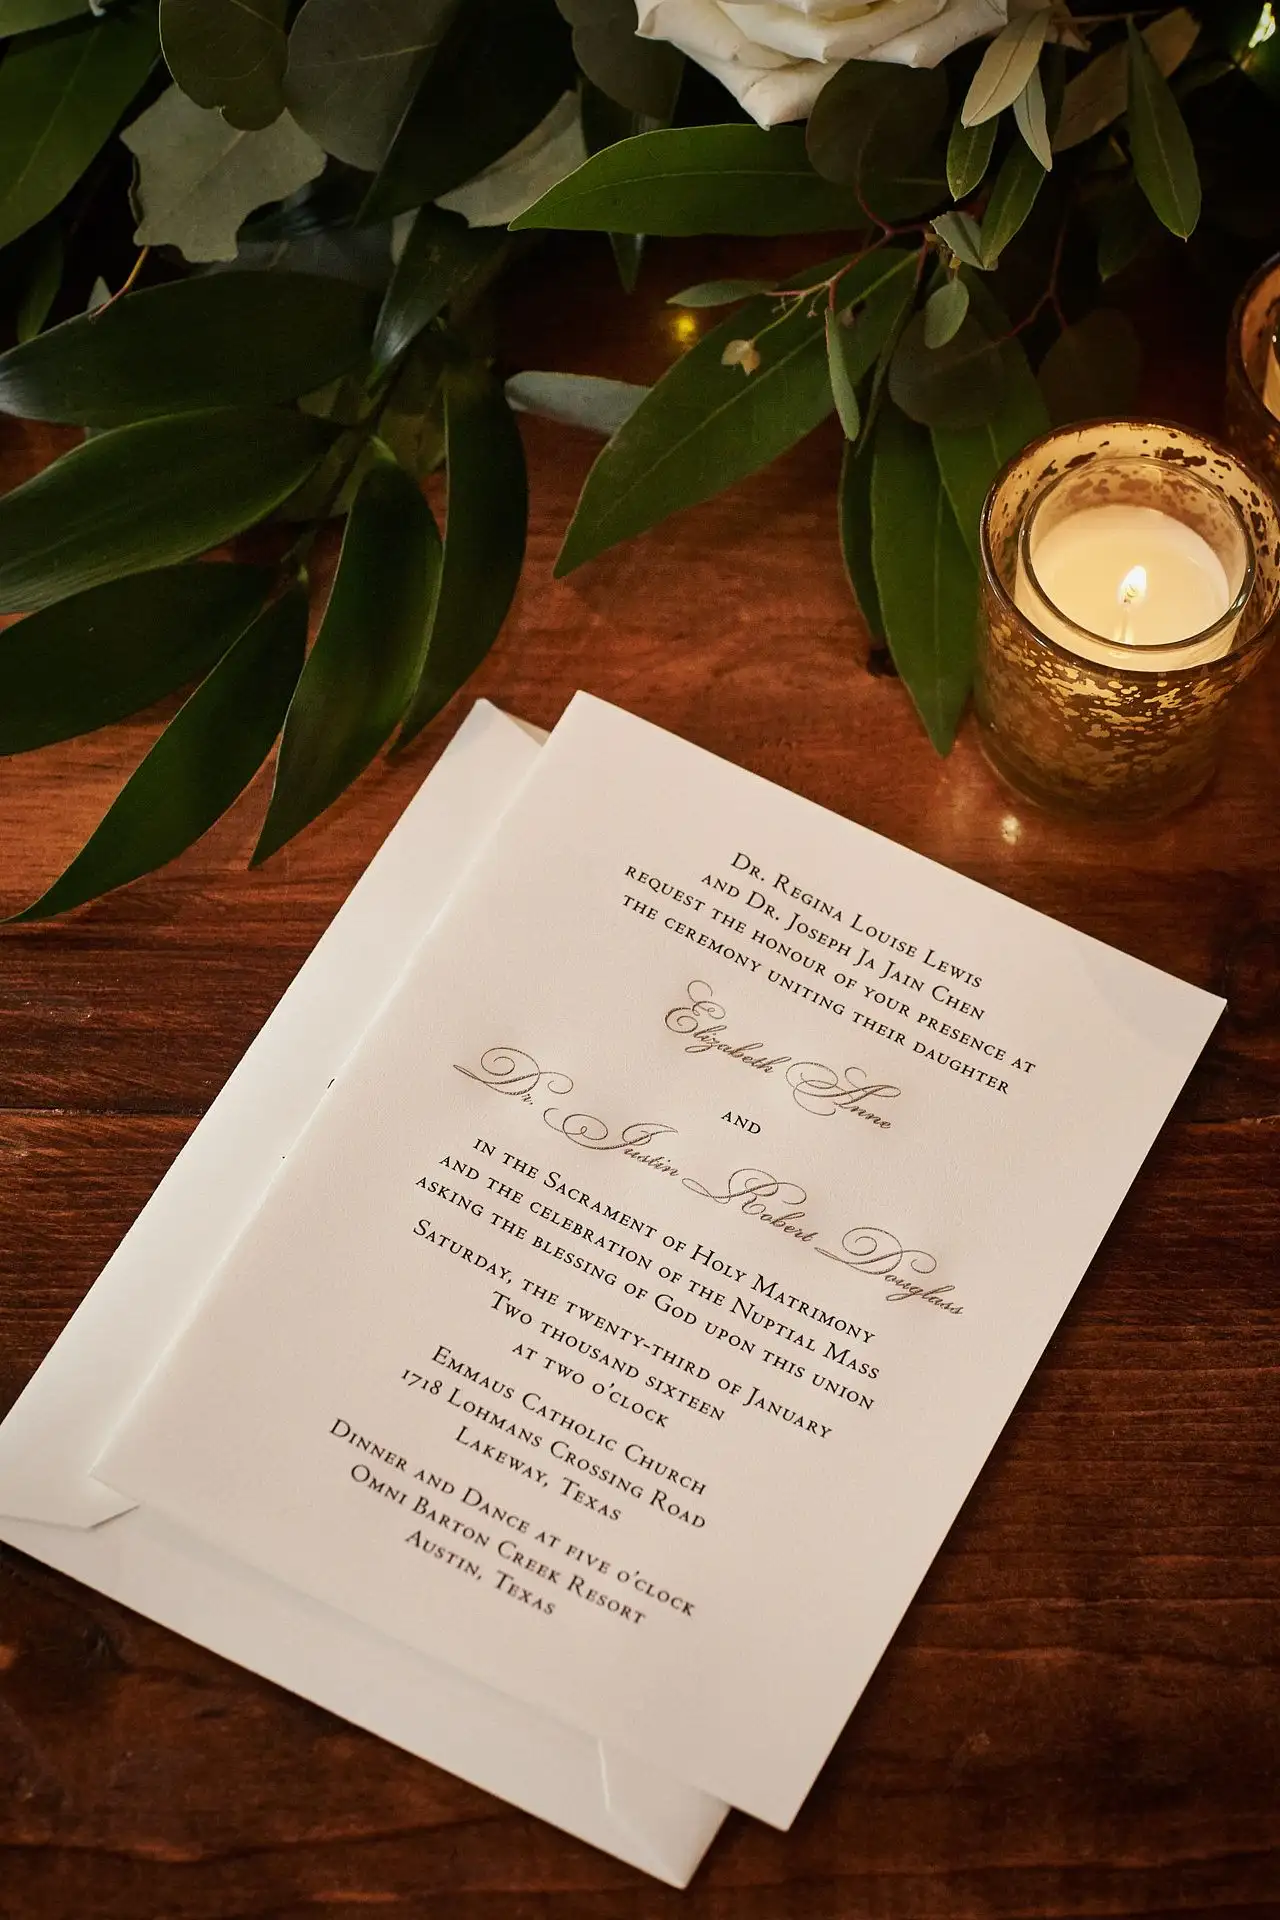 Dr. Regina Louise Lewis
and Dr. Joseph Ja Jain Chen
request the honour of your presence at
the ceremony uniting their daughter
Elizabeth Anne
and
Dr. Justin Robert Douglass
in the Sacrament of Holy Matrimony
and the celebration of the Nuptial Mass
asking the blessing of God upon this union
Saturday, the twenty-third of January
Two thousand sixteen
at two o'clock
Emmaus Catholic Church
1718 Lohmans Crossing Road
Lakeway, Texas
Dinner and Dance at five o'clock
Omni Barton Creek Resort
Austin, Texas